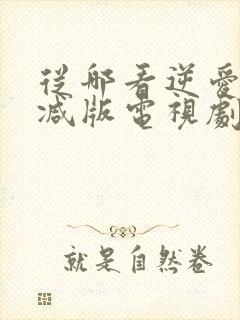 從哪看逆愛
减版電視劇
就是自然卷